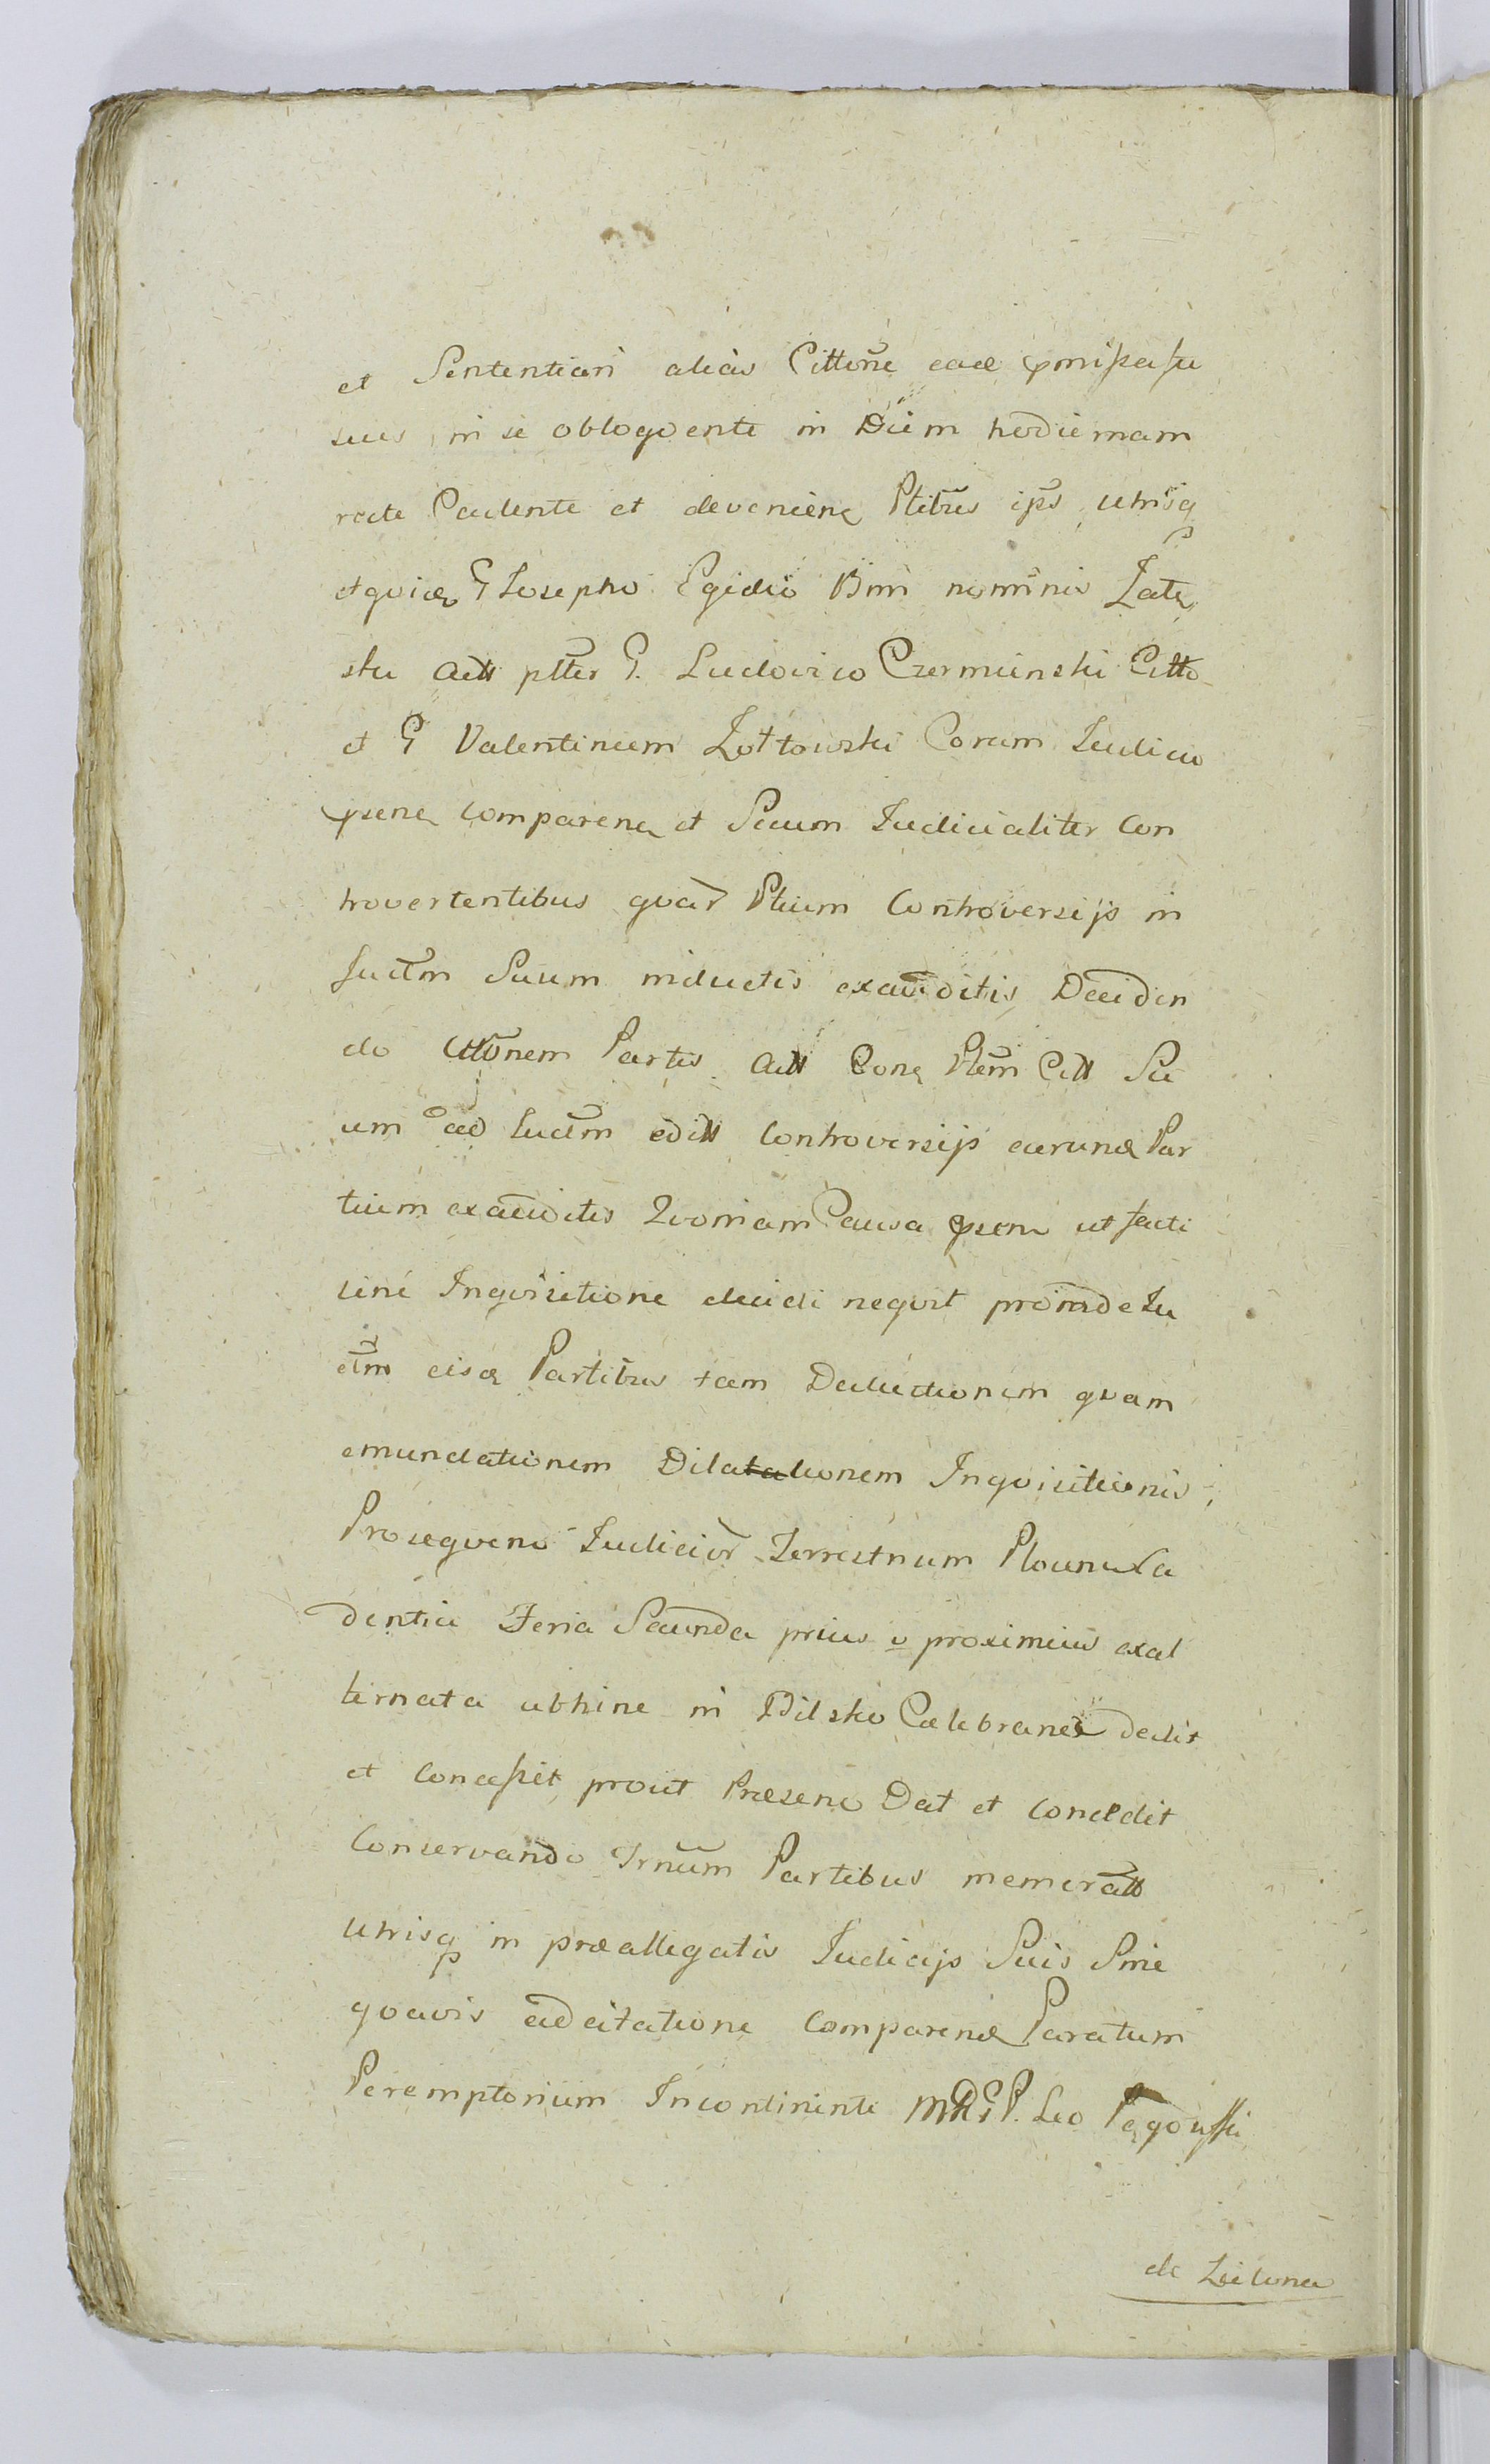 et Sententiari alias Cittone eade
sues in se obloqvente in Diem hodiernam
recte Cadente et devenien Ptibus ips utrisq
etqvide G Josepho Egidio Bini nominis Zate
ski Act ptter G. Ludovico Czerminski Citto
et G Valentinum Zołtowski Coram Iudicio
psen comparen et Secum Iudicialiter Con
trovertentibus qvar Ptium Controversijs in
Iudm Suum inductis exauditis Deciden
do Cittonem Partis Act Con Ptem Citt Su
um ad Iudm editt Controversijs earund Par
tium exauditis Qvoniam Causa psens ut facti
sine Inqvisitione decidi neqvit proinde Iu
dm eisd Partibus tam Deductionem qvam
emundationem Dilationem Inqvisitionis
Proseqvens Iudicior Terrestrium Plocen Ca
dentia Feria Secunda prius v proximius exal
ternata abhinc in Bilsko Celebrand dedit
et concessit prout Præsens Dat et concedit
Conservando Trnum Partibus memoratt
utrisq in præallegatis Iudicijs Suis Sine
qvavis adcitatione Comparend Paratum
Peremptorium Incontinenti P. Leo
de